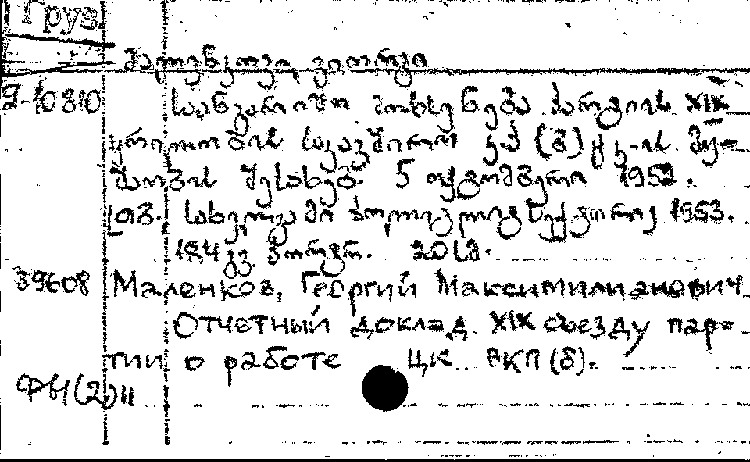 Груз
მალენკოვი, გეორგი
9-10810 საანგარიშო მოხსენება პარტიის XIX
ყრილობის საკავშირო კ.პ (ბ) ც კ-ის მუ-
შაობის შესახებ. 5 ოქტომბერი 1952.
თბ. სახელგამი 1953.
184 გვ პორტრ. 20 სმ.
39608 Маленков, Георгий Максимилианович
Отчетный доклад XIX съезду пар-
тии о работе ЦК ВКП(б).